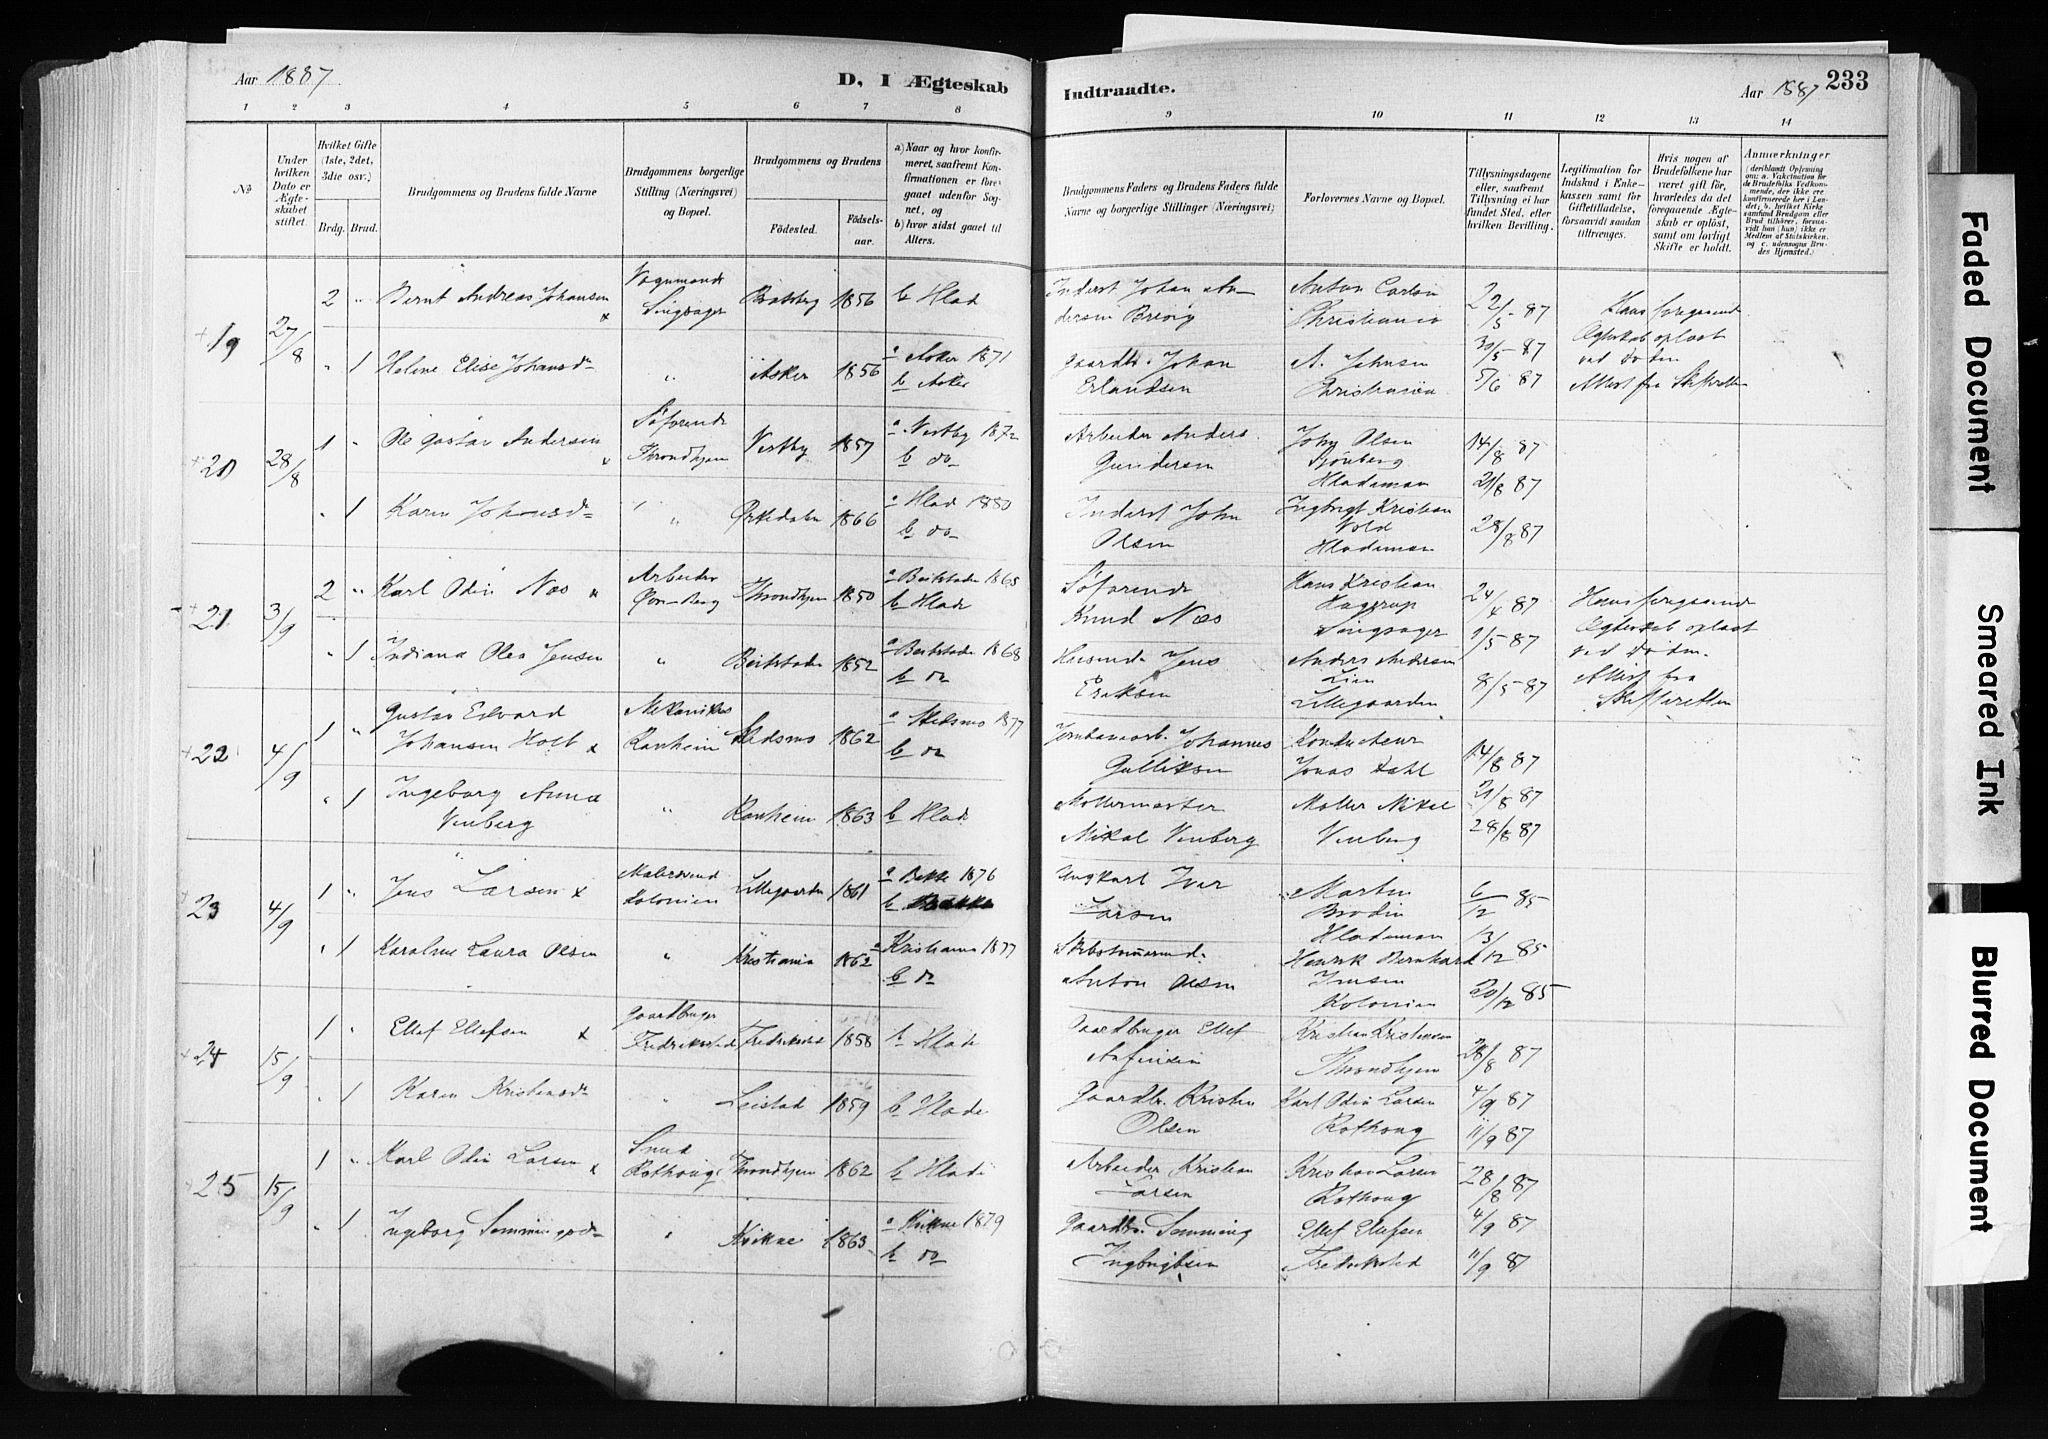 Aar 1887
D, I Ægteskab
Indtraadte.
Aar 1887
233
1 2 3 4 5 6 7 8 9 10 11 12 13 14
No
Under hvilken Dato er Ægteskabet stiftet.
Hvilket Gifte (1ste, 2det, 3die osv.)
Brdg. Brud.
Brudgommens og Brudens fulde Navne
Brudgommens borgerlige Stilling (Næringsvei) og Bopæl.
Brudgommens og Brudens
Fødested.
Fødselsaar.
a) Naar og hvor konfirmeret, saafremt Konfirmationen er foregaaet udenfor Sognet, og
b) hvor sidst gaaet til Alters.
Brudgommens Faders og Brudens Faders fulde Navne og borgerlige Stillinger (Næringsvei)
Forlovernes Navne og Bopæl.
Tillysningsdagene eller, saafremt Tillysning ei har fundet Sted, efter hvilken Bevilling.
Legitimation for Indskud i Enkekassen samt for Giftetilladelse, forsaavidt saadan tiltrænges.
Hvis nogen af Brudefolkene har været gift før, hvorledes da det foregaaende Ægteskab er opløst, samt om lovligt Skifte er holdt.
Anmærkninger (deriblandt Oplysning om: a. Vakcination for de Brudefolks Vedkommende, der ikke ere konfirmerede her i Landet, b. hvilket Kirkesamfund Brudgom eller Brud tilhører, forsaavidt han (hun) ikke er Medlem af Statskirken, og c. udensogns Brudes Hjemsted.)
19 27/8 2 " Bernt Andreas Johansen Vognmand Singsager Bratsberg 1856 b Hlade Inderst Johan Andersen Brevig Anton Carlsen Christiania 22/5 87 Hans foregaaende
" 1 Helene Elise Johansd. " Asker 1856 a Asker 1871 b Asker Gaardbr. Johan Erlandsen A. Johnsen Christiania 30/5 87 5/6 87 Ægteskab opløst ved Døden Attest fra Skifteretten
20 28/8 1 " Ole Gustav Andersen Søfarende Throndhjem Vestby 1857 a Vestby 1872 b do Arbeider Anders Gundersen John Olsen Sjønberg Hlademoen 14/8 87 21/8 87
" 1 Karen Johansd. " Ørkedalen 1866 a Hlade 1880 b do Inderst John Olsen Ingbrigt Kristian Vold Hlademoen 28/8 87
21 3/9 2 " Karl Odin Næs Arbeider Throndhjem 1850 a Beitstaden 1865 b Hlade Søfarende Knud Næs Hans Kristian Hagerup Singsager 24/4 87 Hans foregaaende
" 1 Indiana Olea Jensen " Beitstaden 1852 a Beitstaden 1868 b do Husmand Jens Eriksen Anders Andersen Lian Lillegaarden 1/5 87 8/5 87 Ægteskab opløst ved Døden. Attest fra Skifteretten
22 4/9 1 " Gustav Edvard Johansen Holt Mekanikus Ranheim Skedsmo 1862 a Skedsmo 1877 b do Jernbanearb. Johannes Gulliksen Kondukteur Jonas Dahl 14/8 87
" 1 Ingeborg Anna Venberg " Ranheim 1863 b Hlade Møllermester Mikal Venberg Møller Mikal Venberg 21/8 87 28/8 87
23 4/9 1 " Jens Larsen Malersvend Kolonien Lillegaarden 1861 a Bakke 1876 b Bakke Ungkarl Iver Larsen Martin Brodin Hlademoen 6/12 85
" 1 Karoline Laura Olsen " Kristiania 1862 a Kristiania 1877 b do Skibstømmermd. Anton Olsen Henrik Bernhard Jensen Kolonien 13/12 85 20/12 85
24 15/9 1 " Ellef Ellefsen Gaardbruger Fredriksted Fredriksted 1858 b Hlade Gaardbruger Ellef Anfinsen Kristian Kristiansen Throndhjem 28/8 87
" 1 Karen Kristensd. " Leistad 1859 b Hlade Gaardbr. Kristen Olsen Karl Odin Larsen Rothoug 4/9 87 11/9 87
25 15/9 1 " Karl Odin Larsen Smed Rothoug Throndhjem 1862 b Hlade Arbeider Kristian Larsen Kristian Larsen Rothoug 28/8 87
" 1 Ingeborg Sommingsd. " Kvikne 1863 a Kvikne 1879 b do Gaardbr. Somming Ingbrigtsen Ellef Ellefsen Fredriksted 4/9 87 11/9 87
Faded Document
Smeared Ink
Blurred Document